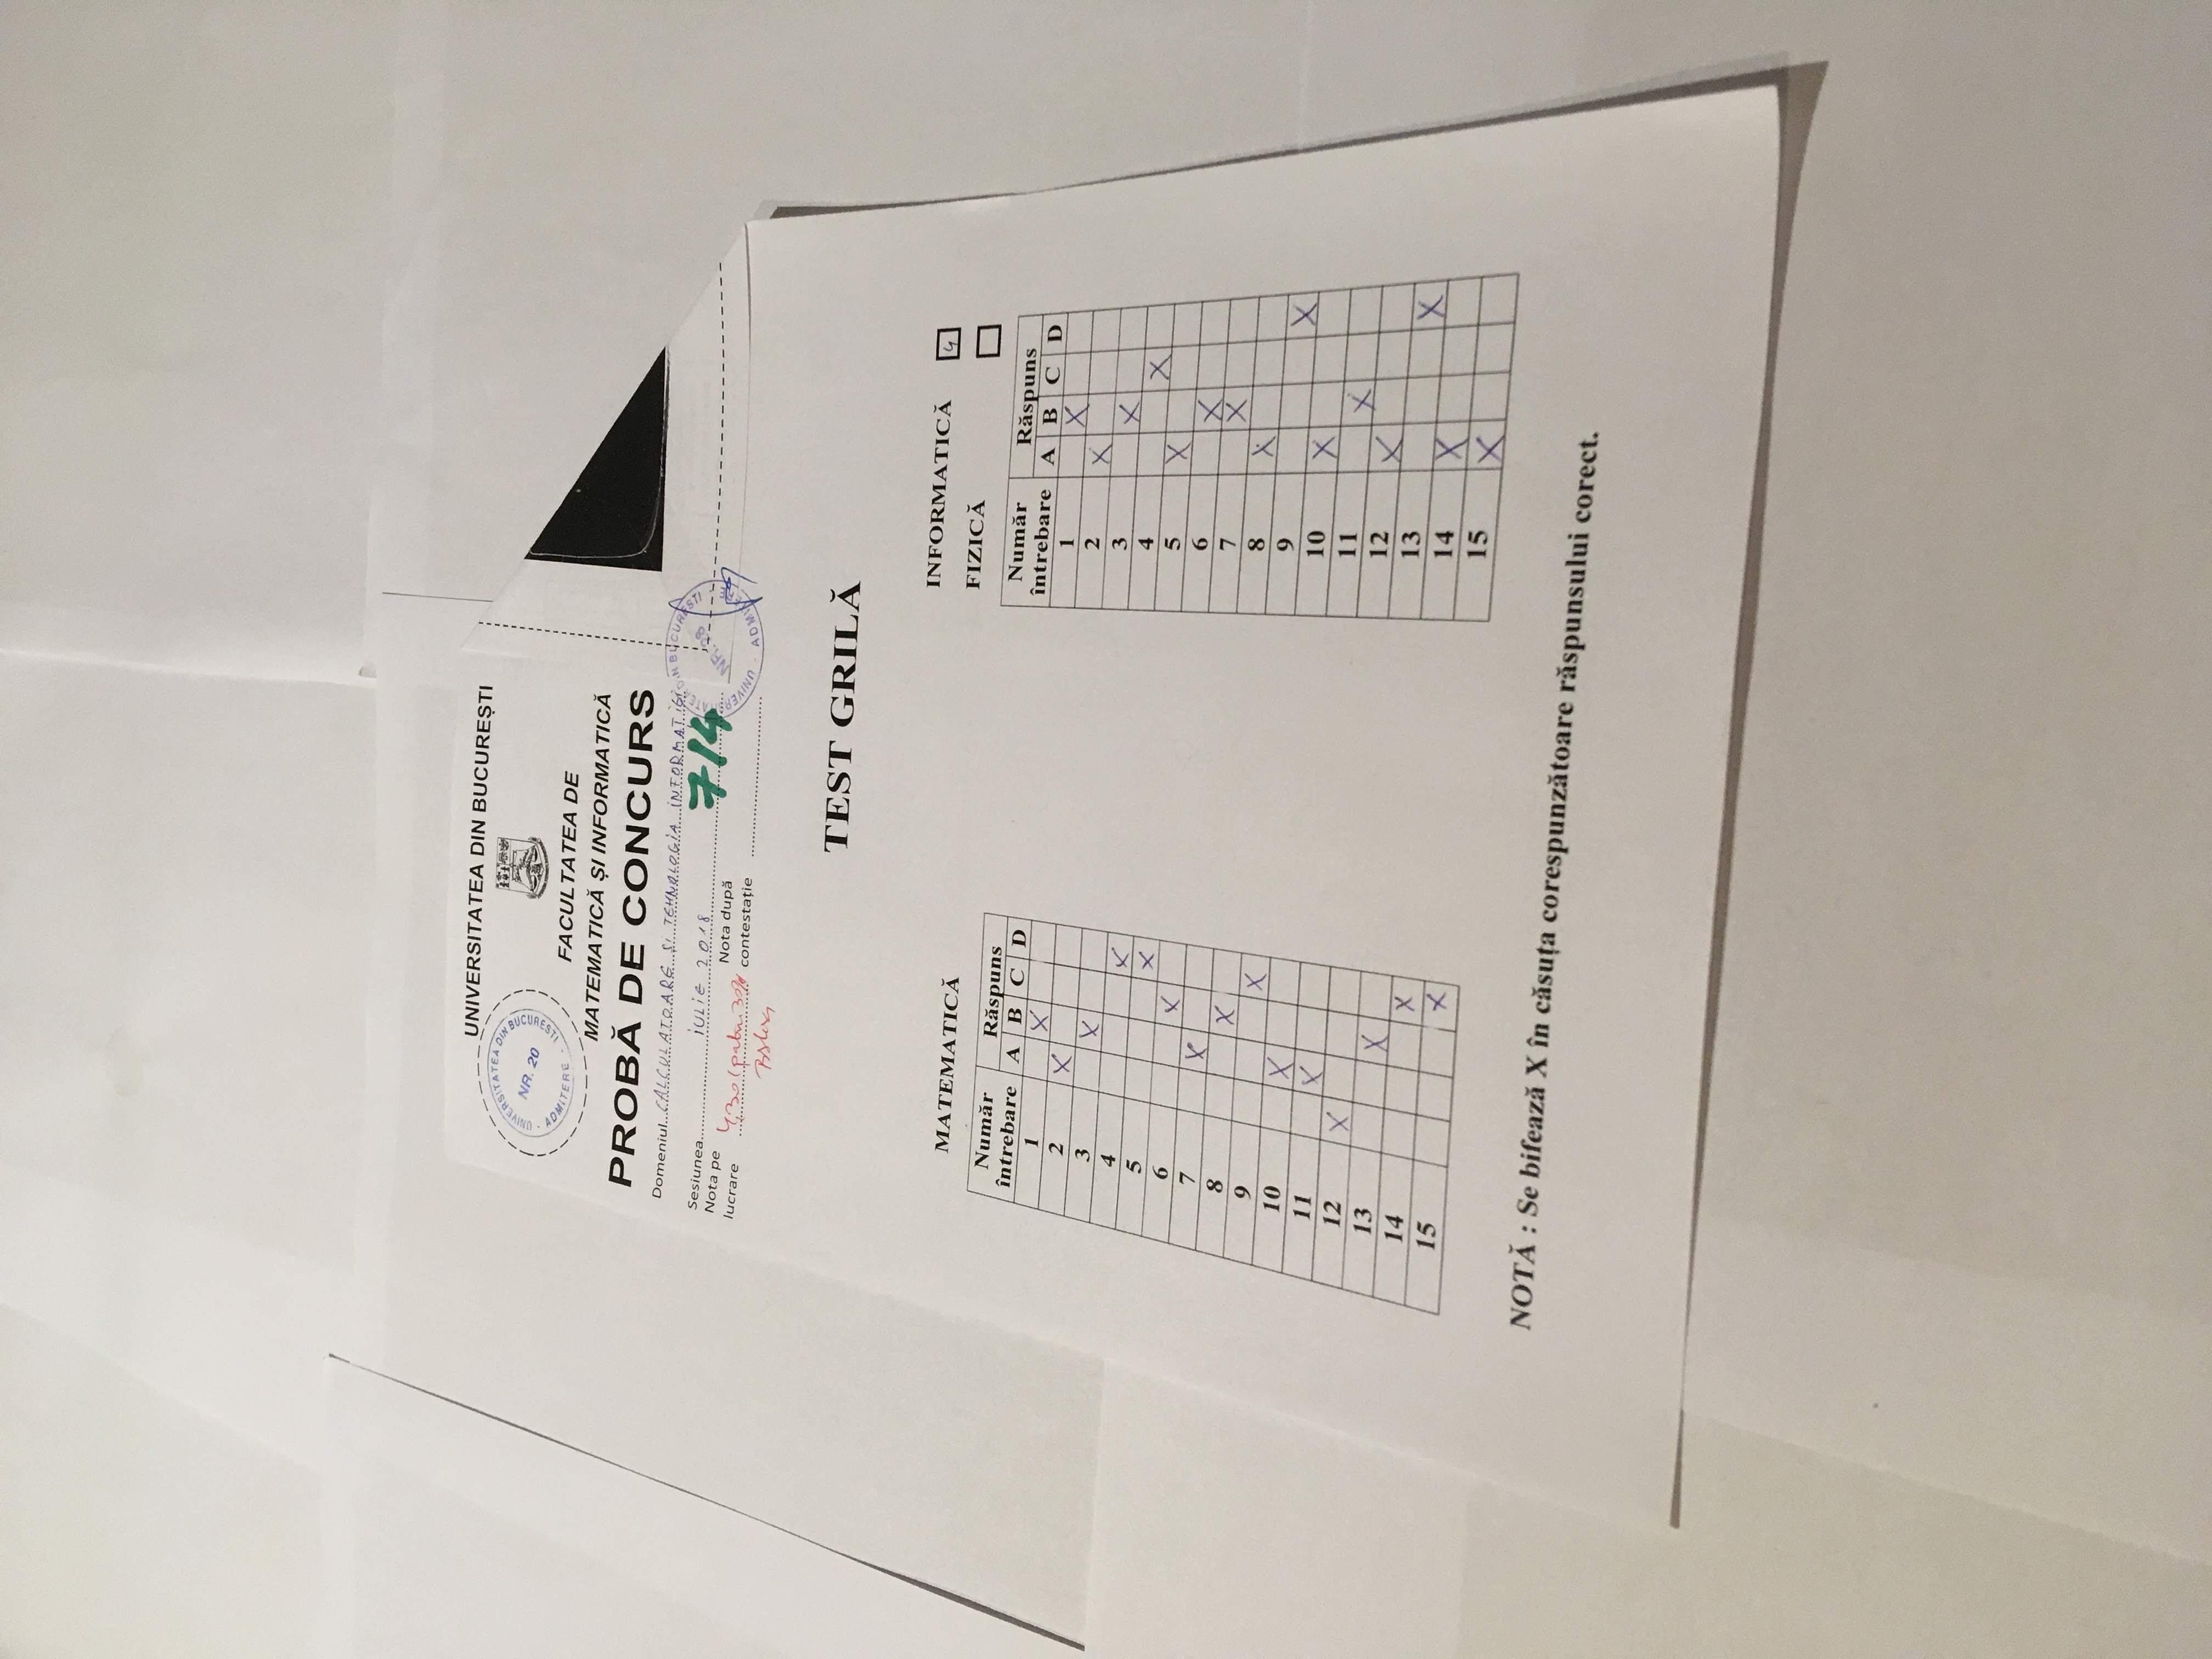 UNIVERSITATEA DIN BUCUREȘTI
UNIVERSITATEA DIN BUCURESTI
NR. 20
ADMITERE
FACULTATEA DE
MATEMATICĂ ȘI INFORMATICĂ
PROBĂ DE CONCURS
Domeniul CALCULATOARE ȘI TEHNOLOGIA INFORMAȚIEI
Sesiunea IULIE 2018
714
UNIVERSITATEA DIN BUCURESTI
NR. 28
ADMITERE
Nota pe lucrare 4,30 (patru 30%
Nota după contestație
TEST GRILĂ
MATEMATICĂ
Număr întrebare Răspuns
A B C D
1 X
2 X
3 X
4 X
5 X
6 X
7 X
8 X
9 X
10 X
11 X
12 X
13 X
14 X
15 X
INFORMATICĂ 4
FIZICĂ
Număr întrebare Răspuns
A B C D
1 X
2 X
3 X
4 X
5 X
6 X
7 X
8 X
9 X
10 X
11 X
12 X
13 X
14 X
15 X
NOTĂ : Se bifează X în căsuța corespunzătoare răspunsului corect.